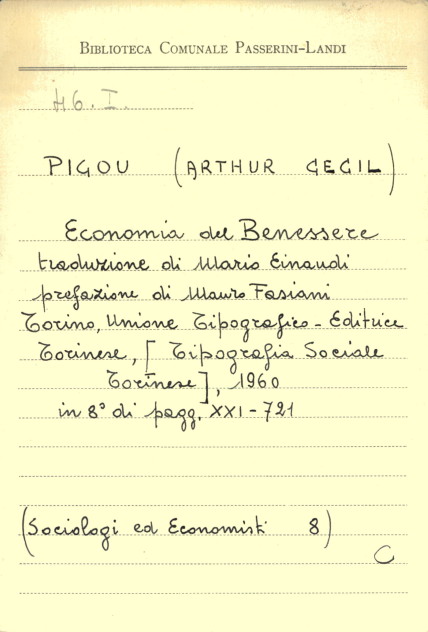 BIBLIOTECA COMUNALE PASSERINI-LANDI
H6. I.
PIGOU (ARTHUR CECIL)
Economia del Benessere
traduzione di Mario Einaudi
prefazione di Mauro Fasiani
Torino, Unione Tipografico-Editrice
Torinese, [Tipografia Sociale
Torinese], 1960
in 8° di pagg. XXI-721
(Sociologi ed Economisti 8)
C